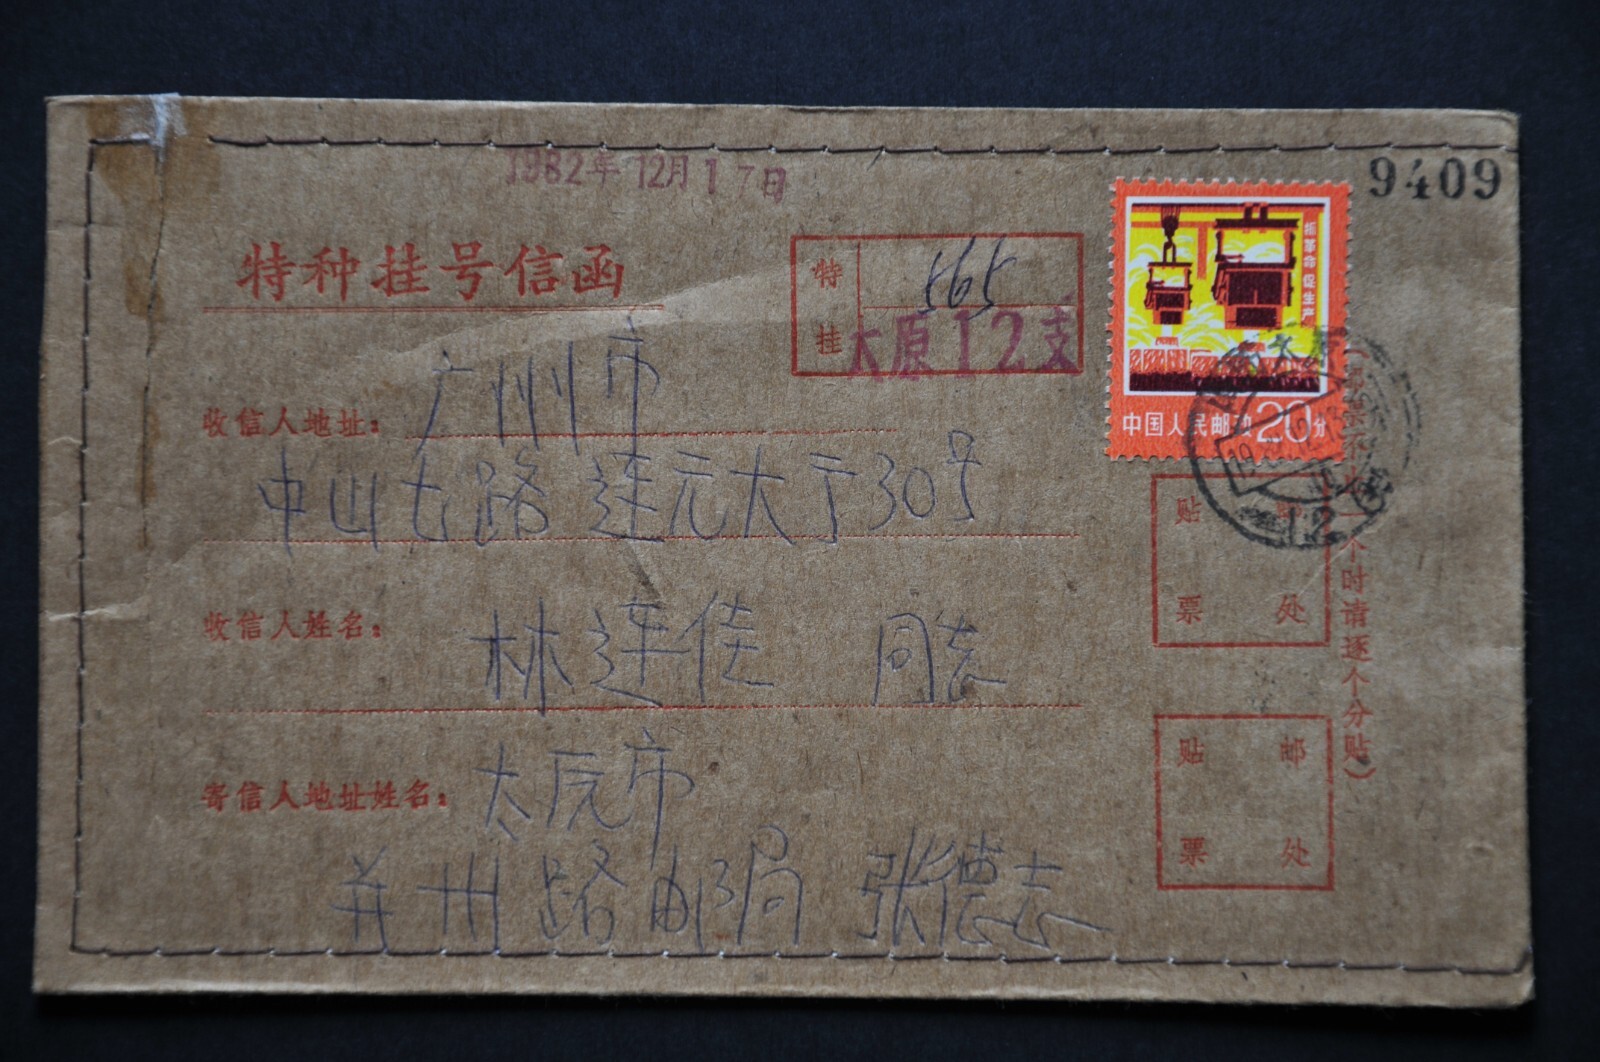 1982年12月17日
9409
特种挂号信函
特挂
565
太原12支
抓革命促生产
中国人民邮政20分
收信人地址：广州市
中山七路连元大于30号
收信人姓名：林连佳 同志
寄信人地址姓名：太原市
并州路邮局 张德志
贴邮票处
贴邮票处
个时请逐个分贴）